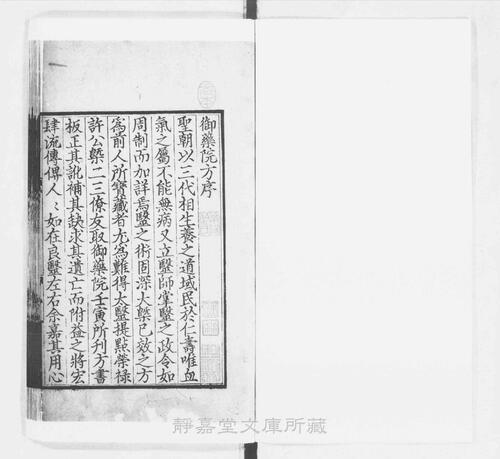 御藥院方序
聖朝以三代相生養之道域民於仁壽唯血
氣之屬不能無病又立毉師掌毉之政令如
周制而加詳焉毉之術固深大槩已效之方
爲前人所寳藏者尤爲難得太毉提點榮禄
許公槩二三僚友取御藥院壬寅所刋方書
板正其訛補其缺求其遺亡而附益之將宏
肆流傳俾人〻如在良毉左右余嘉其用心
靜嘉堂文庫所藏